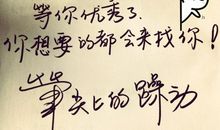 等你优秀了
你想要的都会来找你！
笔尖上的躁动